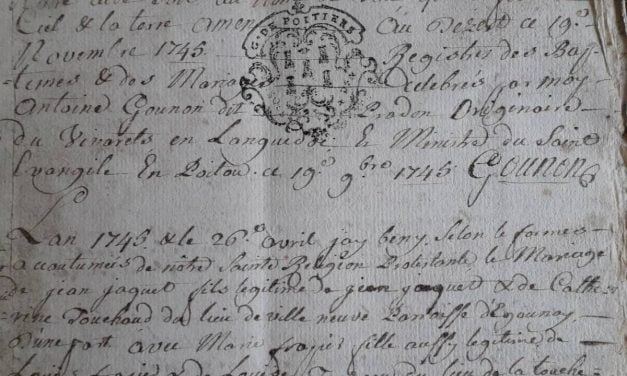 Ciel & la terre amen Au Dezert ce 19.e
G. DE POITIERS
Novembre 1745 Registre des Bap-
temes & des Mariages Celebres par moy
Antoine Gounon dit Pradon Originaire
du Vivarets en Languedoc & Ministre du Saint
Evangile En Poitou ce 19.e 9.bre 1745 Gounon
Lan 1745 & le 26.e avril jay beny selon le formes
accoutumées de nôtre Sainte Religion Protestante le Mariage
de jean jaquet fils legitime de jean jaquet & de Cathe-
rine Touchaud du lieu de ville neuve Paroisse d'Exounay
d'une part avec Marie frapier fille aussy legitime de
Louis frapier & de Louise du lieu de la touche